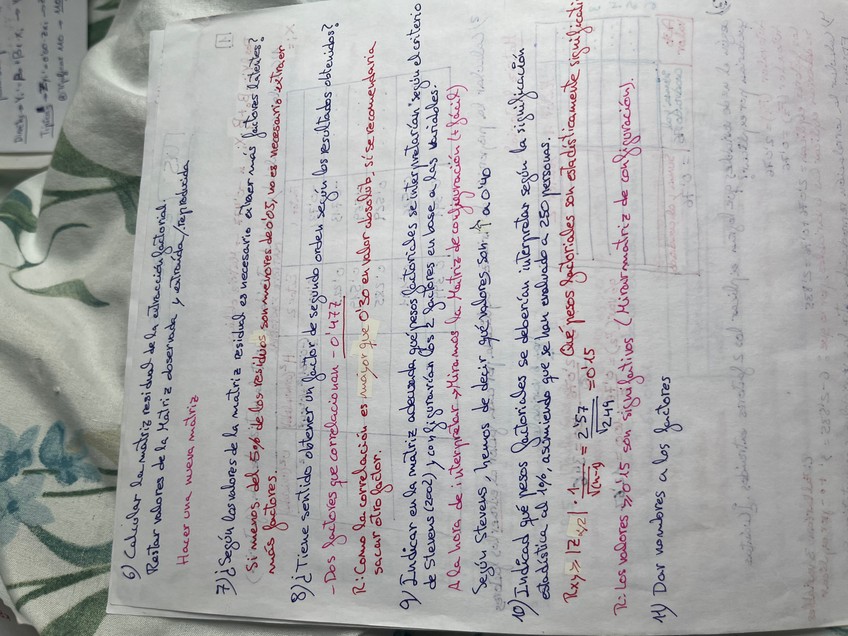 6) Calcular la matriz residual de la extracción factorial.
Restar valores de la Matriz observada y extraída/reproducida
Hacer una nueva matriz
7) ¿Según los valores de la matriz residual es necesario extraer más factores latentes?
Si menos del 5% de los residuos son menores de 0'05, no es necesario extraer
más factores.
8) ¿Tiene sentido obtener un factor de segundo orden según los resultados obtenidos?
- Dos factores que correlacionan - 0'477
R: Como la correlación es mayor que 0'30 en valor absoluto, sí se recomendaría
sacar otro factor.
9) Indicar en la matriz adecuada qué pesos factoriales se interpretarían según el criterio
de Stevens (2002) y configurarían los 2 factores en base a las variables.
A la hora de interpretar → Miramos la Matriz de configuración (+ fácil)
Según Stevens, hemos de decir qué valores son ↑ a 0'40
10) Indicad qué pesos factoriales se deberían interpretar según la significación
estadística al 1%, asumiendo que se han evaluado a 250 personas.
Rxy ≥ |Zα/2| · 1/√(n-1) = 2'57/√249 = 0'15 Qué pesos factoriales son estadísticamente significati
R: Los valores ≥ 0'15 son significativos (Mirar matriz de configuración).
11) Dar nombres a los factores